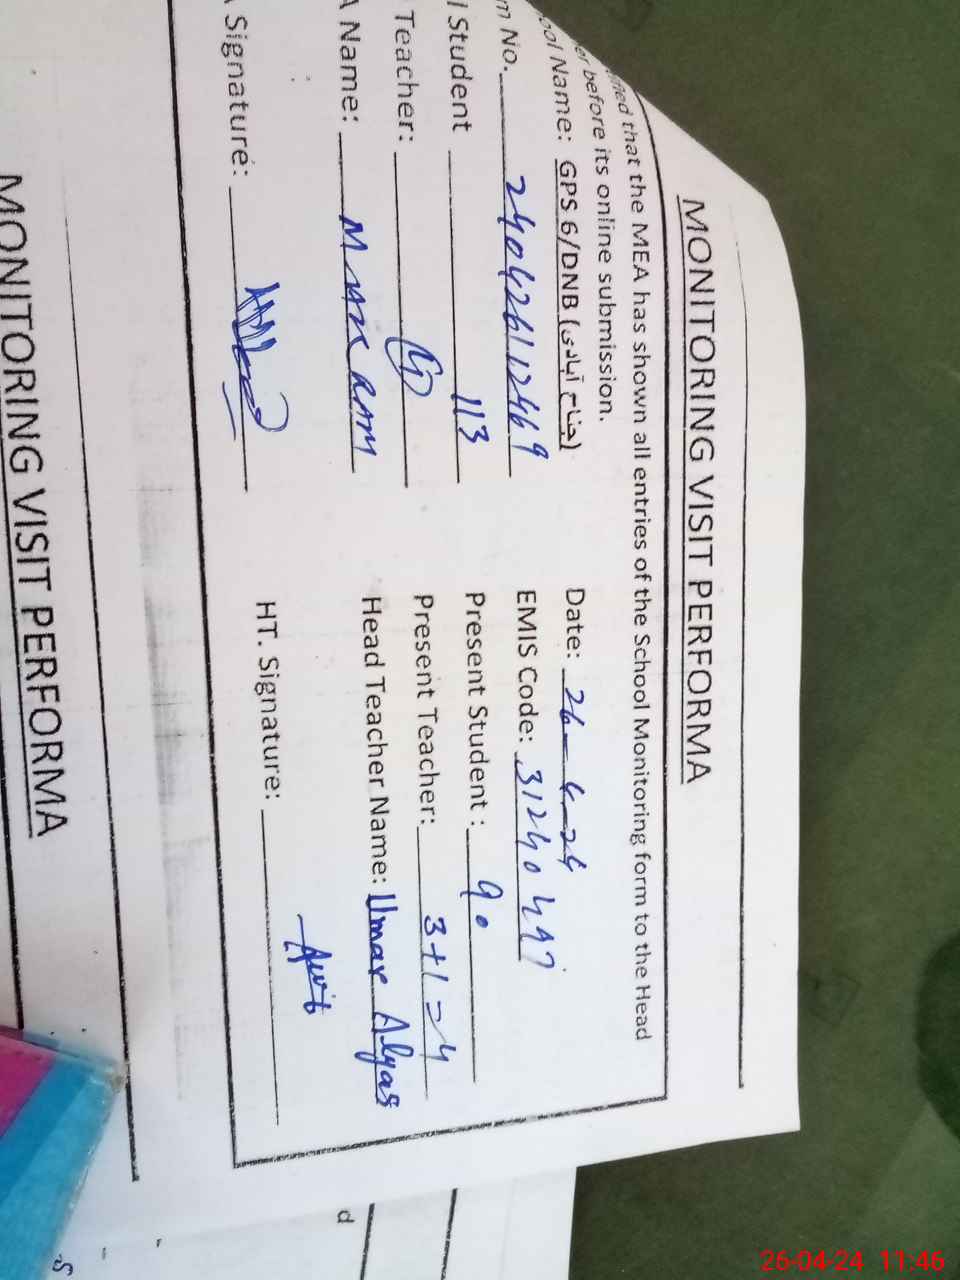 MONITORING VISIT PERFORMA
ified that the MEA has shown all entries of the School Monitoring form to the Head
er before its online submission.
ool Name: GPS 6/DNB (جناح آبادی) Date: 26-4-24
m No. 240426112469 EMIS Code: 31240497
l Student 113 Present Student : 90
Teacher: Present Teacher: 3+1=4
A Name: M IMRAN RAM Head Teacher Name: Umar Alyas
Signature: HT. Signature:
MONITORING VISIT PERFORMA
d
26-04-24 11:46